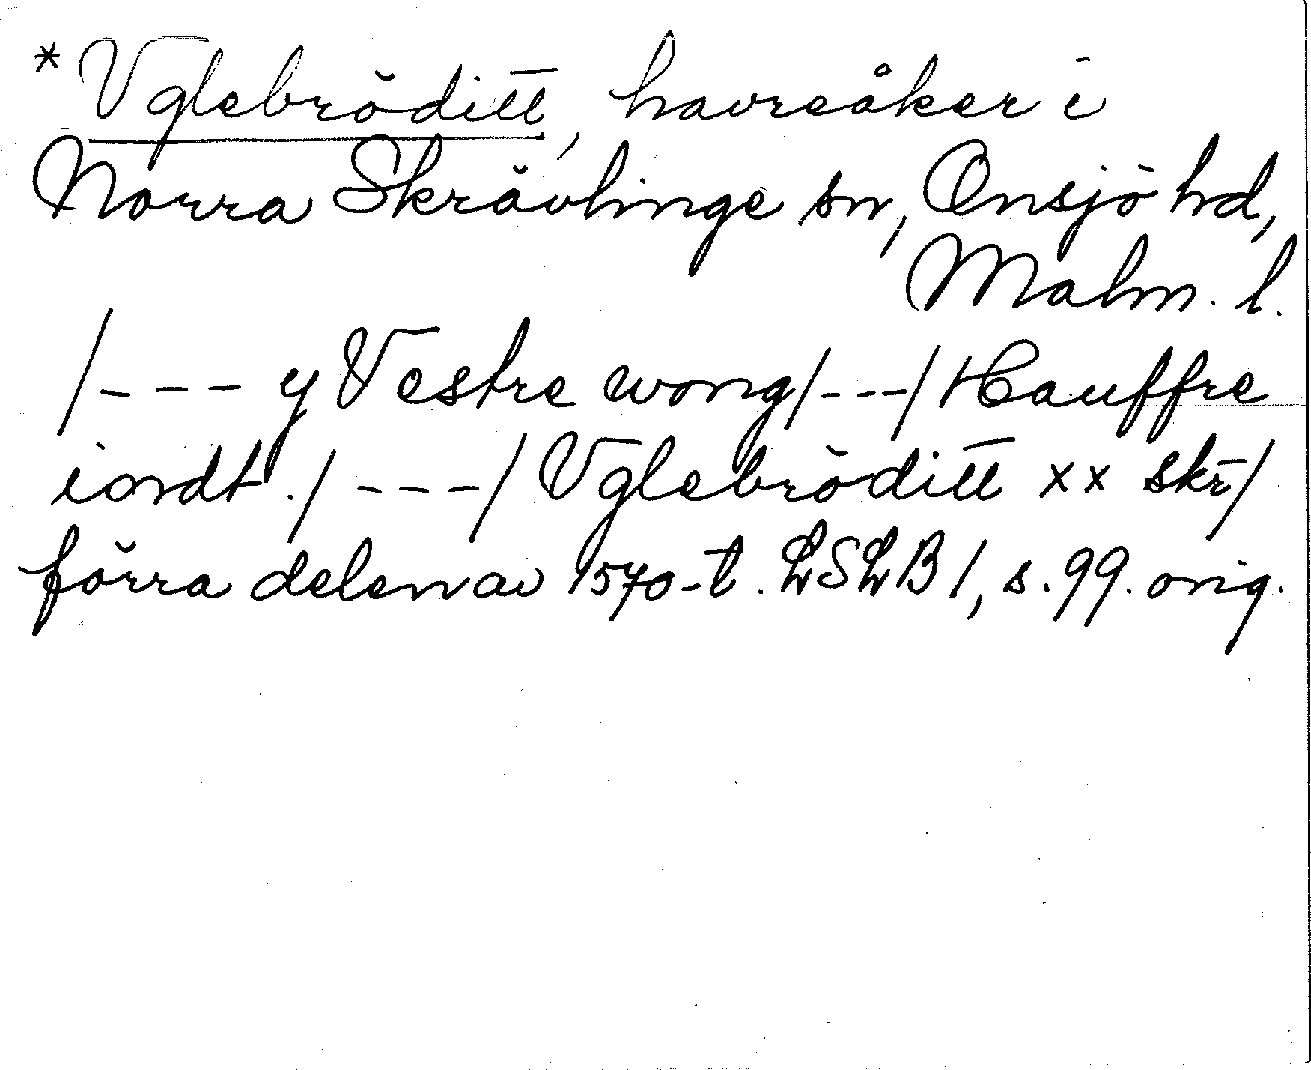 *Vglebröditt, havreåker i
Norra Skrävlinge sn, Onsjö hd,
Malm. l.
/--- y Vestre wong/---/Hauffre
iordt./---/Vglebröditt xx skr/
förra delen av 1570-t. LSLB 1, s. 99. orig.